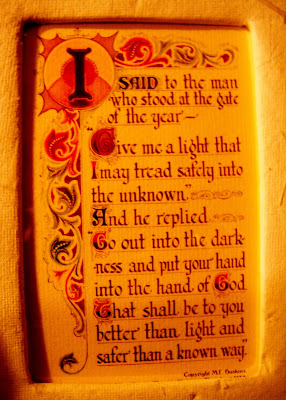 I SAID to the man
who stood at the gate
of the year—
"Give me a light that
I may tread safely into
the unknown."
And he replied
"Go out into the dark-
ness and put your hand
into the hand of God
That shall be to you
better than light and
safer than a known way."
Copyright M.L.